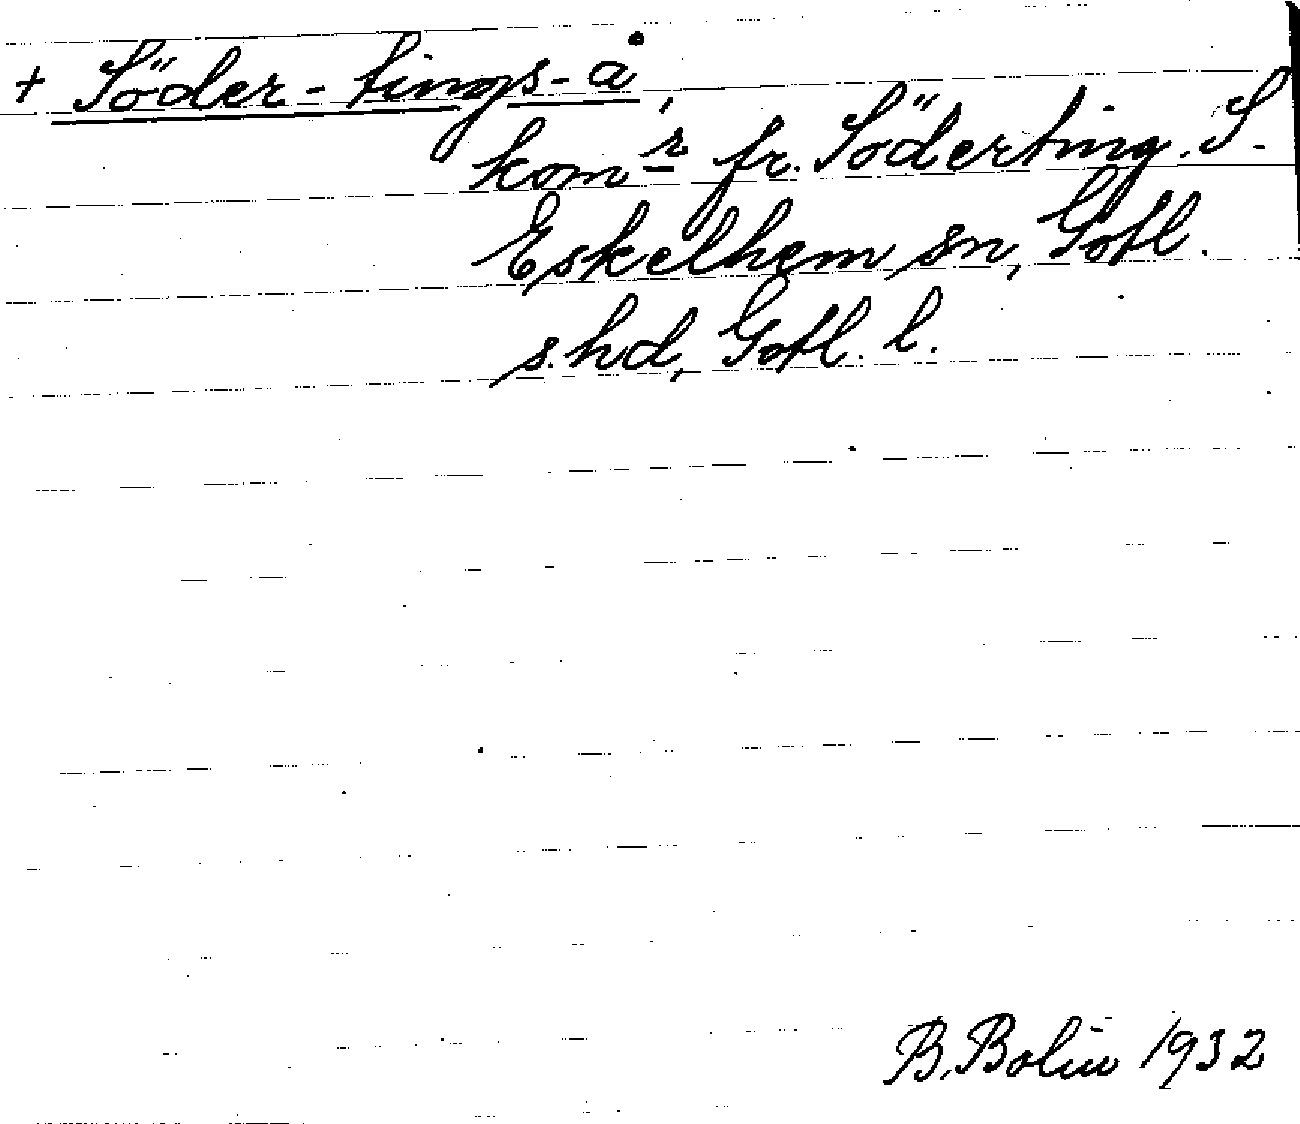 + Söder-tings-å,
kom r fr. Söderting. S.
Eskelhem sn, Gotl.
s.hd, Gotl. l.
B. Bolin 1932